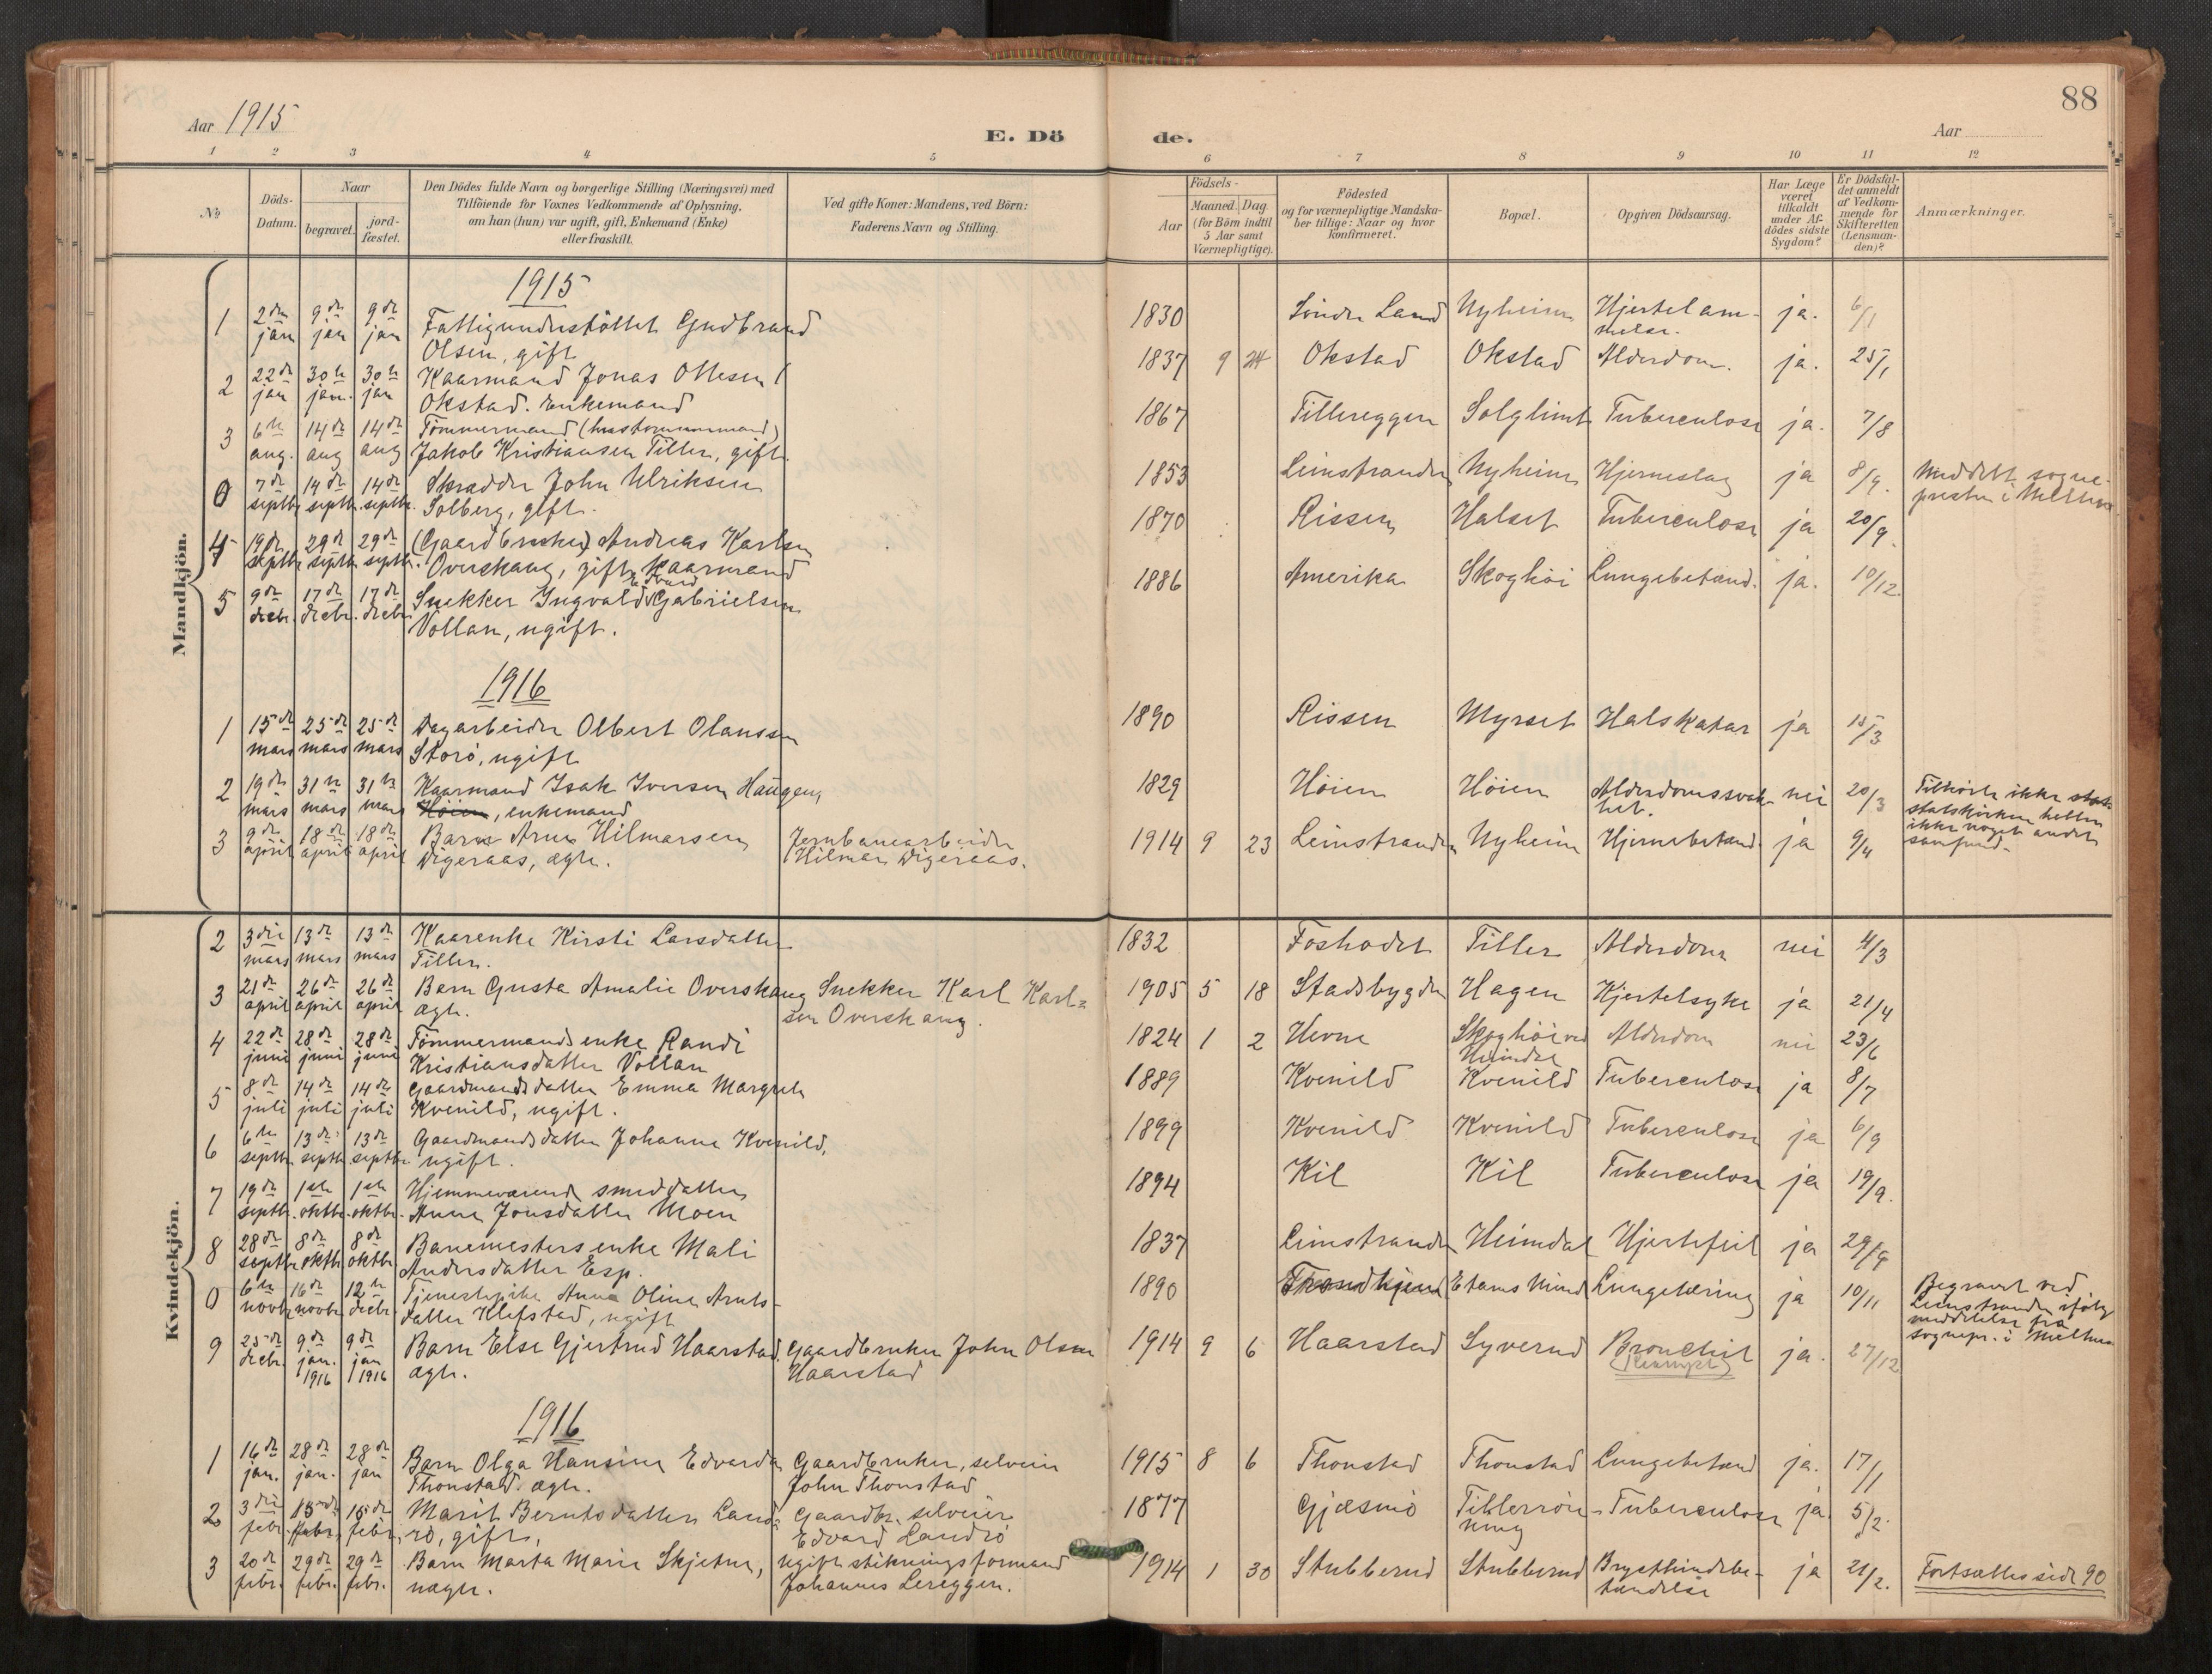 88
Aar 1915
E. Dö de.
Aar
1 2 3 4 5 6 7 8 9 10 11 12
No
Döds-Datum.
Naar
begravet.
jord-fæstet.
Den Dödes fulde Navn og borgerlige Stilling (Næringsvei) med
Tilföiende for Voxnes Vedkommende af Oplysning,
om han (hun) var ugift, gift, Enkemand (Enke)
eller fraskilt.
Ved gifte Koner: Mandens, ved Börn:
Faderens Navn og Stilling.
Födsels-
Aar
Maaned. Dag.
(for Börn indtil
5 Aar samt
Værnepligtige).
Födested
og for værnepligtige Mandska-
ber tillige: Naar og hvor
konfirmeret.
Bopæl.
Opgiven Dödsaarsag.
Har Læge
været
tilkaldt
under Af-
dödes sidste
Sygdom?
Er Dödsfal-
det anmeldt
af Vedkom-
mende for
Skifteretten
(Lensman-
den)?
Anmærkninger.
Mandkjön.
1915
1 2den jan 9de jan 9de jan Fattigunderstöttet Gudbrand 1830 Söndre Land Nyheim Hjertelam- ja. 6/1
Olsen, gift melse.
2 22de jan 30te jan. 30te jan Kaarmand Jonas Ottesen 1837 9 24 Okstad Okstad Alderdom. ja. 25/1
Okstad. Enkemand
3 6te aug. 14de aug 14de aug Tömmermand (husmand) 1867 Tillereggen Solglimt Tuberculose ja. 7/8
Jakob Kristiansen Tiller, gift.
0 7de septbr. 14de septbr. 14de septbr. Skrædder John Ulriksen 1853 Leinstranden Nyheim Hjerneslag ja 8/9. Meddelt sogne-
Solberg, gift. presten i Melhus
4 19de septbr. 29de septbr. 29de septbr. (Gaardbruker) Andreas Karlsen 1870 Rissen Halset Tuberculose ja 20/9.
Overskaug, gift kaarmand
5 9de decbr. 17de decbr. 17de decbr. Snekker Ingvald Edvard Gabrielsen 1886 Amerika Skoghöi Lungebetænd. ja. 10/12.
Vollan, ugift.
1916
1 15de mars 25de mars 25de mars Dagarbeider Olbert Olaussen 1890 Rissen Myrset Halskatar ja 15/3
Storö, ugift
2 19de mars 31te mars 31te mars Kaarmand Isak Iversen Haugen, 1829 Höien Höien Alderdomssvak- nei 20/3 Tilhörte ikke
Höien, enkemand het. statskirken heller
3 9de april 18de april 18de april Barn Arne Hilmarsen Jernbanearbeider 1914 9 23 Leinstranden Nyheim Hjernebetænd. ja 9/4 ikke noget andet
Digeraas, ægte. Hilmar Digeraas. samfund.
Kvindekjön.
2 3die mars 13de mars 13de mars Kaarenke Kirsti Larsdatter 1832 Foshodet Tiller Alderdom nei 4/3
Tiller.
3 21de april 26de april 26de april Barn Gusta Amalie Overskaug Snekker Karl Karl- 1905 5 18 Stadsbygden Hagen Kjertelsyke ja 21/4
ægte. sen Overskaug.
4 22de juni 28de juni 28de juni Tömmermands enke Randi 1824 1 2 Hevne Skoghöi ved Alderdom nei 23/6
Kristiansdatter Vollan Heimdal
5 8de juli 14de juli 14de juli Gaardmandsdatter Emma Margrete 1889 Kvenild Kvenild Tuberculose ja 8/7
Kvenild, ugift.
6 6te septbr. 13de septbr. 13de septbr. Gaardmandsdatter Johanna Kvenild, 1899 Kvenild Kvenild Tuberculose ja 6/9
ugift.
7 19de septbr. 1ste oktbr. 1ste oktbr. Hjemmeværende smeddatter 1894 Kil Kil Tuberculose ja 19/9.
Anna Jonsdatter Moen
8 28de septbr 8de oktbr 8de oktbr Banemesters enke Mali 1837 Leinstranden Heimdal Hjertefeil ja 29/9
Andersdatter Esp.
0 6te novbr 16de novbr 12te decbr. Tjenestepike Anna Oline Arnts- 1890 Trondhjem Etams Minde Lungetæring ja 10/11 Begravet ved
datter Klefstad, ugift Leinstranden ifölge
meddelelse fra
sognepr. i Melhus
9 25de decbr. 9de jan. 1916 9de jan 1916 Barn Else Gjertrud Haarstad. Gaardbruker John Olsen 1914 9 6 Haarstad Syverud Bronchit ja. 27/12
ægte. Haarstad
1916
1 16de jan. 28de jan. 28de jan Barn Olga Hansine Edvarda Gaardbruker, selveier 1915 8 6 Thonstad Thonstad Lungebetænd ja. 17/1
Thonstad. ægte. John Thonstad
2 3die febr. 15de febr. 15de febr. Marit Berntsdatter Land- Gaardbr. selveier 1877 Gjæsmö Tillerröin- Tuberculose ja. 5/2.
rö, gift, Edvard Landrö ning
3 20de febr. 29de febr. 29de febr. Barn Marta Marie Skjetne, Ugift stikningsformand 1914 1 30 Stubberud Stubberud Brysthindebe- ja 21/2. Fortsættes side 90
uægte. Johannes Lereggen. tændelse